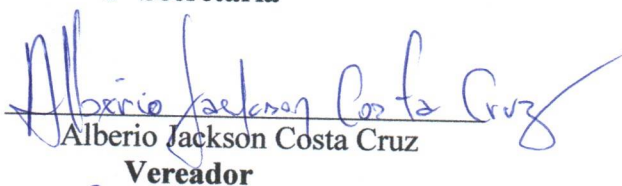 Alberio Jackson Costa Cruz
Alberio Jackson Costa Cruz
Vereador